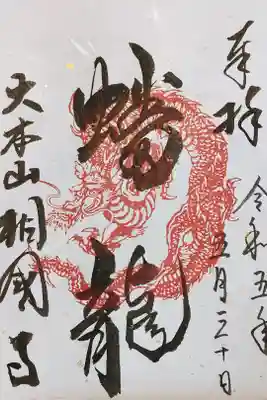 奉拝
令和五年
五月三十日
蟠龍
大本山相国寺